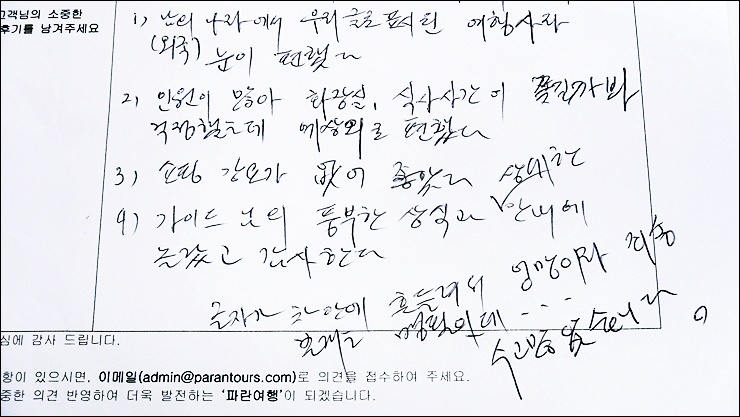 고객님의 소중한
후기를 남겨주세요
1) 남의 나라에서 우리글로 표시된 여행사라
(외국) 눈이 편했다
2) 인원이 많아 화장실, 식사시간이 쫓길까봐
걱정했는데 예상외로 편했다
3) 쇼핑 강요가 없어 좋았다
4) 가이드 님의 풍부한 상식과 상세한 안내에
놀랐고 감사한다
글자가 차안에 흔들려서 엉망이라 죄송
수고 많았습니다
심에 감사 드립니다.
항이 있으시면, 이메일(admin@parantours.com)로 의견을 접수하여 주세요.
중한 의견 반영하여 더욱 발전하는 '파란여행'이 되겠습니다.